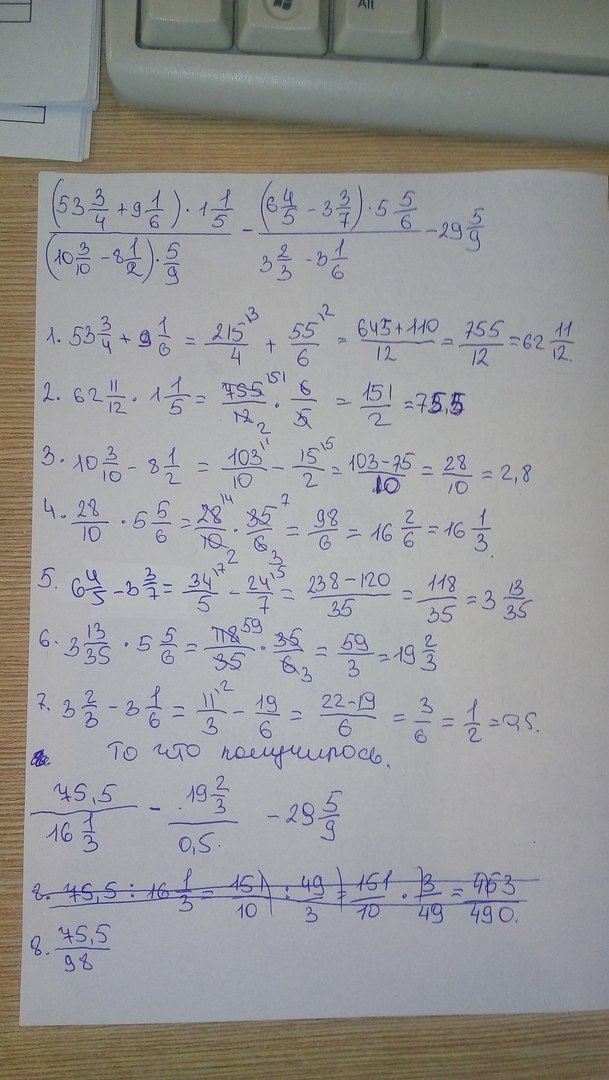 Alt
(53 3/4 + 9 1/6) · 1 1/5 / (10 3/10 − 8 1/2) · 5/9 − (6 4/5 − 3 3/7) · 5 5/6 / 3 2/3 − 3 1/6 − 29 5/9
1. 53 3/4 + 9 1/6 = 215/4 \3 + 55/6 \2 = 645+110/12 = 755/12 = 62 11/12.
2. 62 11/12 · 1 1/5 = 755/12 \151 2 · 6/5 = 151/2 = 75,5
3. 10 3/10 − 8 1/2 = 103/10 \1 − 15/2 \5 = 103−75/10 = 28/10 = 2,8
4. 28/10 · 5 5/6 = 28/10 14 2 · 35/6 7 3 = 98/6 = 16 2/6 = 16 1/3.
5. 6 4/5 − 3 3/7 = 34/5 \7 − 24/7 \5 = 238−120/35 = 118/35 = 3 13/35
6. 3 13/35 · 5 5/6 = 118/35 59 · 35/6 3 = 59/3 = 19 2/3
7. 3 2/3 − 3 1/6 = 11/3 \2 − 19/6 = 22−19/6 = 3/6 = 1/2 = 0,5.
То что получилось.
75,5 / 16 1/3 − 19 2/3 / 0,5. − 29 5/9
8. 75,5 : 16 1/3 = 151/10 : 49/3 = 151/10 · 3/49 = 453/490.
8. 75,5/98